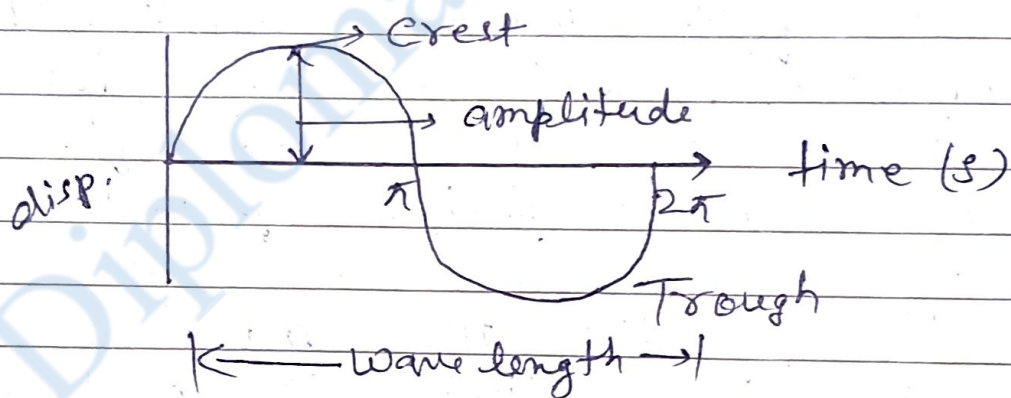 Crest
amplitude
time (s)
disp.
π
2π
Trough
wave length
Diploma